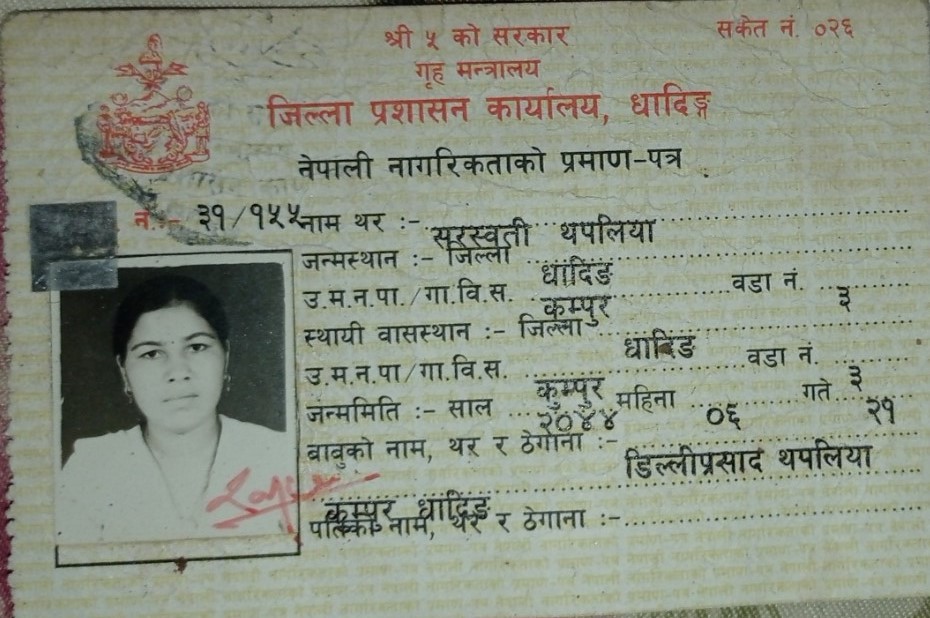 श्री ५ को सरकार
सकेत नं. ०२६
गृह मन्त्रालय
जिल्ला प्रशासन कार्यालय, धादिङ्ग
नेपाली नागरिकताको प्रमाण-पत्र
नं.- ३१/१५५ नाम थर :- सरस्वती थपलिया
जन्मस्थान :- जिल्ला धादिङ
उ.म.न.पा./गा.वि.स. कुम्पुर वडा नं. ३
स्थायी वासस्थान :- जिल्ला धादिङ
उ.म.न.पा/गा.वि.स. कुम्पुर वडा नं. ३
जन्ममिति :- साल २०४४ महिना ०६ गते २१
बाबुको नाम, थर र ठेगाना :- डिल्लीप्रसाद थपलिया
कुम्पुर धादिङ
पतिको नाम, थर र ठेगाना :-